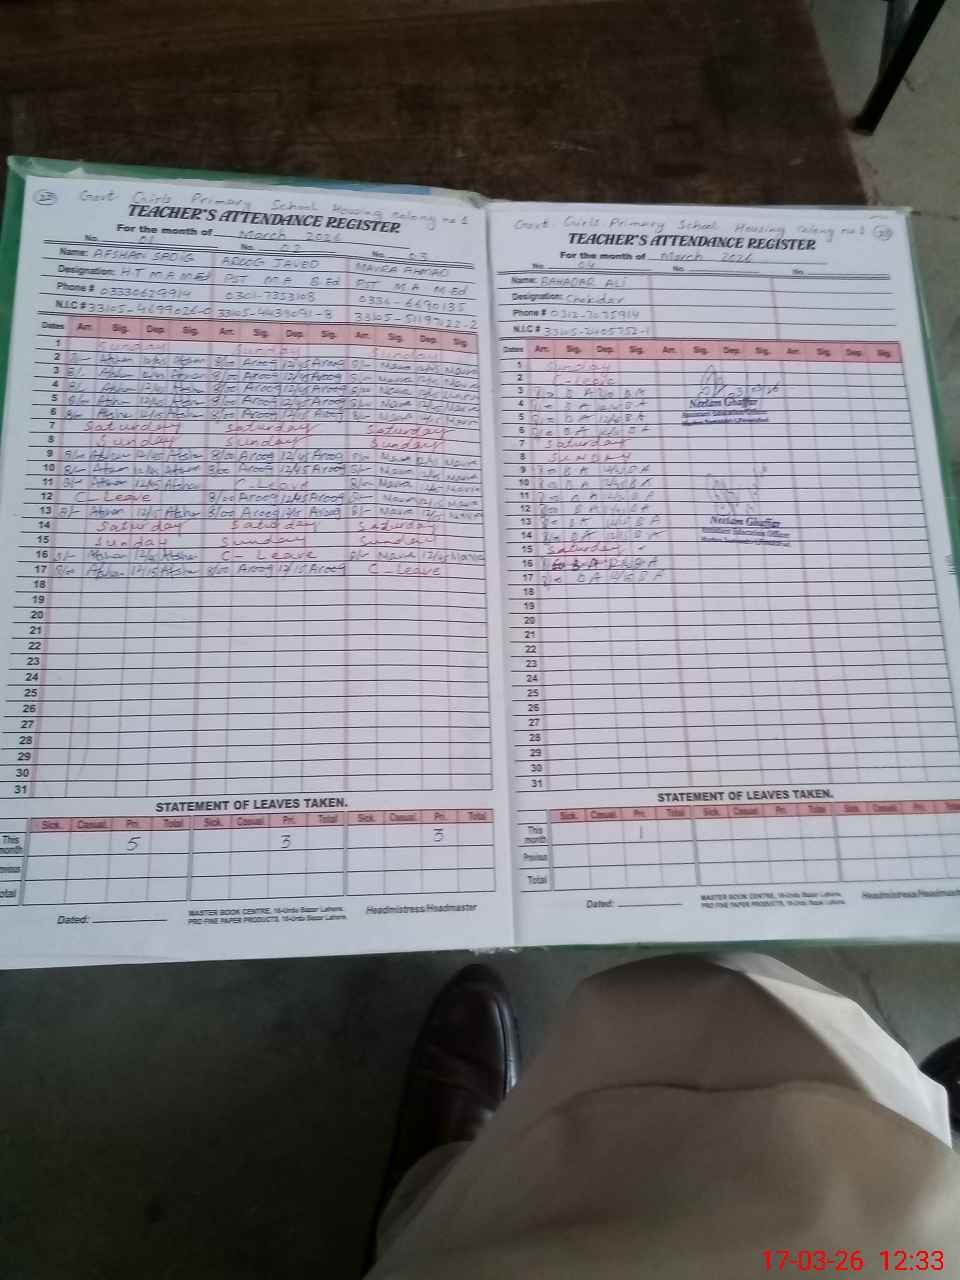 23 Govt. Girls Primary School Housing Colony no 1
TEACHER'S ATTENDANCE REGISTER
For the month of March 2026
No. 01 No. 02 No. 03
Name: AFSHAN SADIQ AROOG JAVED MAVRA AHMAD
Designation: H T M A M Ed PST M A B.Ed PST M A M.Ed
Phone # 03330629914 0301-7353108 0336-6690135
N.I.C # 33105-4699026-0 33105-4439091-8 33105-51197122-2
Dates Arr. Sig. Dep. Sig. Arr. Sig. Dep. Sig. Arr. Sig. Dep. Sig.
1 Sunday Sunday Sunday
2 8/- Afshan 12/45 Afshan 8/00 Aroog 12/45 Aroog 8/- Mavra 12/45 Mavra
3 8/- Afshan Afshan 8/00 Aroog 12/45 Aroog Mavra
4 8/- Afshan 12/45 Afshan 8/00 Aroog 12/45 Aroog Mavra
5 8/- Afshan 12/45 Afshan 8/00 Aroog 12/45 Aroog Mavra
6 8/- Afshan 12/15 Afshan 8/00 Aroog 12/15 Aroog 8/- Mavra Mavra
7 Saturday Saturday Saturday
8 Sunday Sunday Sunday
9 8/- Afshan 12/45 Afshan 8/00 Aroog 12/45 Aroog 8/- Mavra 12/45 Mavra
10 8/- Afshan 12/45 Afshan 8/00 Aroog 12/45 Aroog 8/- Mavra Mavra
11 8/- Afshan 12/45 Afshan C-Leave 8/- Mavra Mavra
12 C-Leave 8/00 Aroog 12/45 Aroog 8/- Mavra Mavra
13 8/- Afshan 12/15 Afshan 8/00 Aroog 12/15 Aroog 8/- Mavra Mavra
14 Saturday Saturday Saturday
15 Sunday Sunday Sunday
16 8/- Afshan 12/45 Afshan C-Leave 8/- Mavra 12/45 Mavra
17 8/00 Afshan 12/15 Afshan 8/00 Aroog 12/15 Aroog C-Leave
18
19
20
21
22
23
24
25
26
27
28
29
30
31
STATEMENT OF LEAVES TAKEN.
Sick. Casual. Pri. Total Sick. Casual. Pri. Total Sick. Casual. Pri. Total
This month 5 3 3
Total
Dated: MASTER BOOK CENTRE, 16-Urdu Bazar Lahore. Headmistress/Headmaster
PRO FINE PAPER PRODUCTS, 16-Urdu Bazar Lahore.
Govt. Girls Primary School Housing Colony no 1
TEACHER'S ATTENDANCE REGISTER
For the month of March 2026
No. 04 No. No.
Name: BAHADAR ALI
Designation: Chokidar
Phone # 0312-7035914
N.I.C #
Dates Arr. Sig. Dep. Sig. Arr. Sig. Dep. Sig. Arr. Sig. Dep. Sig.
1 Sunday
2 C-Leave
3 B A B A
4 B A B A Neelam Ghaffar
5 B A B A Assistant Education Officer
6 B A B A
7 Saturday
8 SUNDAY
9 B A B A
10 B A B A
11 B A B A
12 B A B A
13 B A B A Neelam Ghaffar
14 B A B A Assistant Education Officer
15 Saturday
16 B A
17 B A B A
18
19
20
21
22
23
24
25
26
27
28
29
30
31
STATEMENT OF LEAVES TAKEN.
Sick. Casual. Pri. Total Sick. Casual. Pri. Total Sick. Casual. Pri.
This month 1
Previous
Total
Dated: MASTER BOOK CENTRE, 16-Urdu Bazar Lahore. Headmistress/Headmast
PRO FINE PAPER PRODUCTS, 16-Urdu Bazar Lahore.
17-03-26 12:33